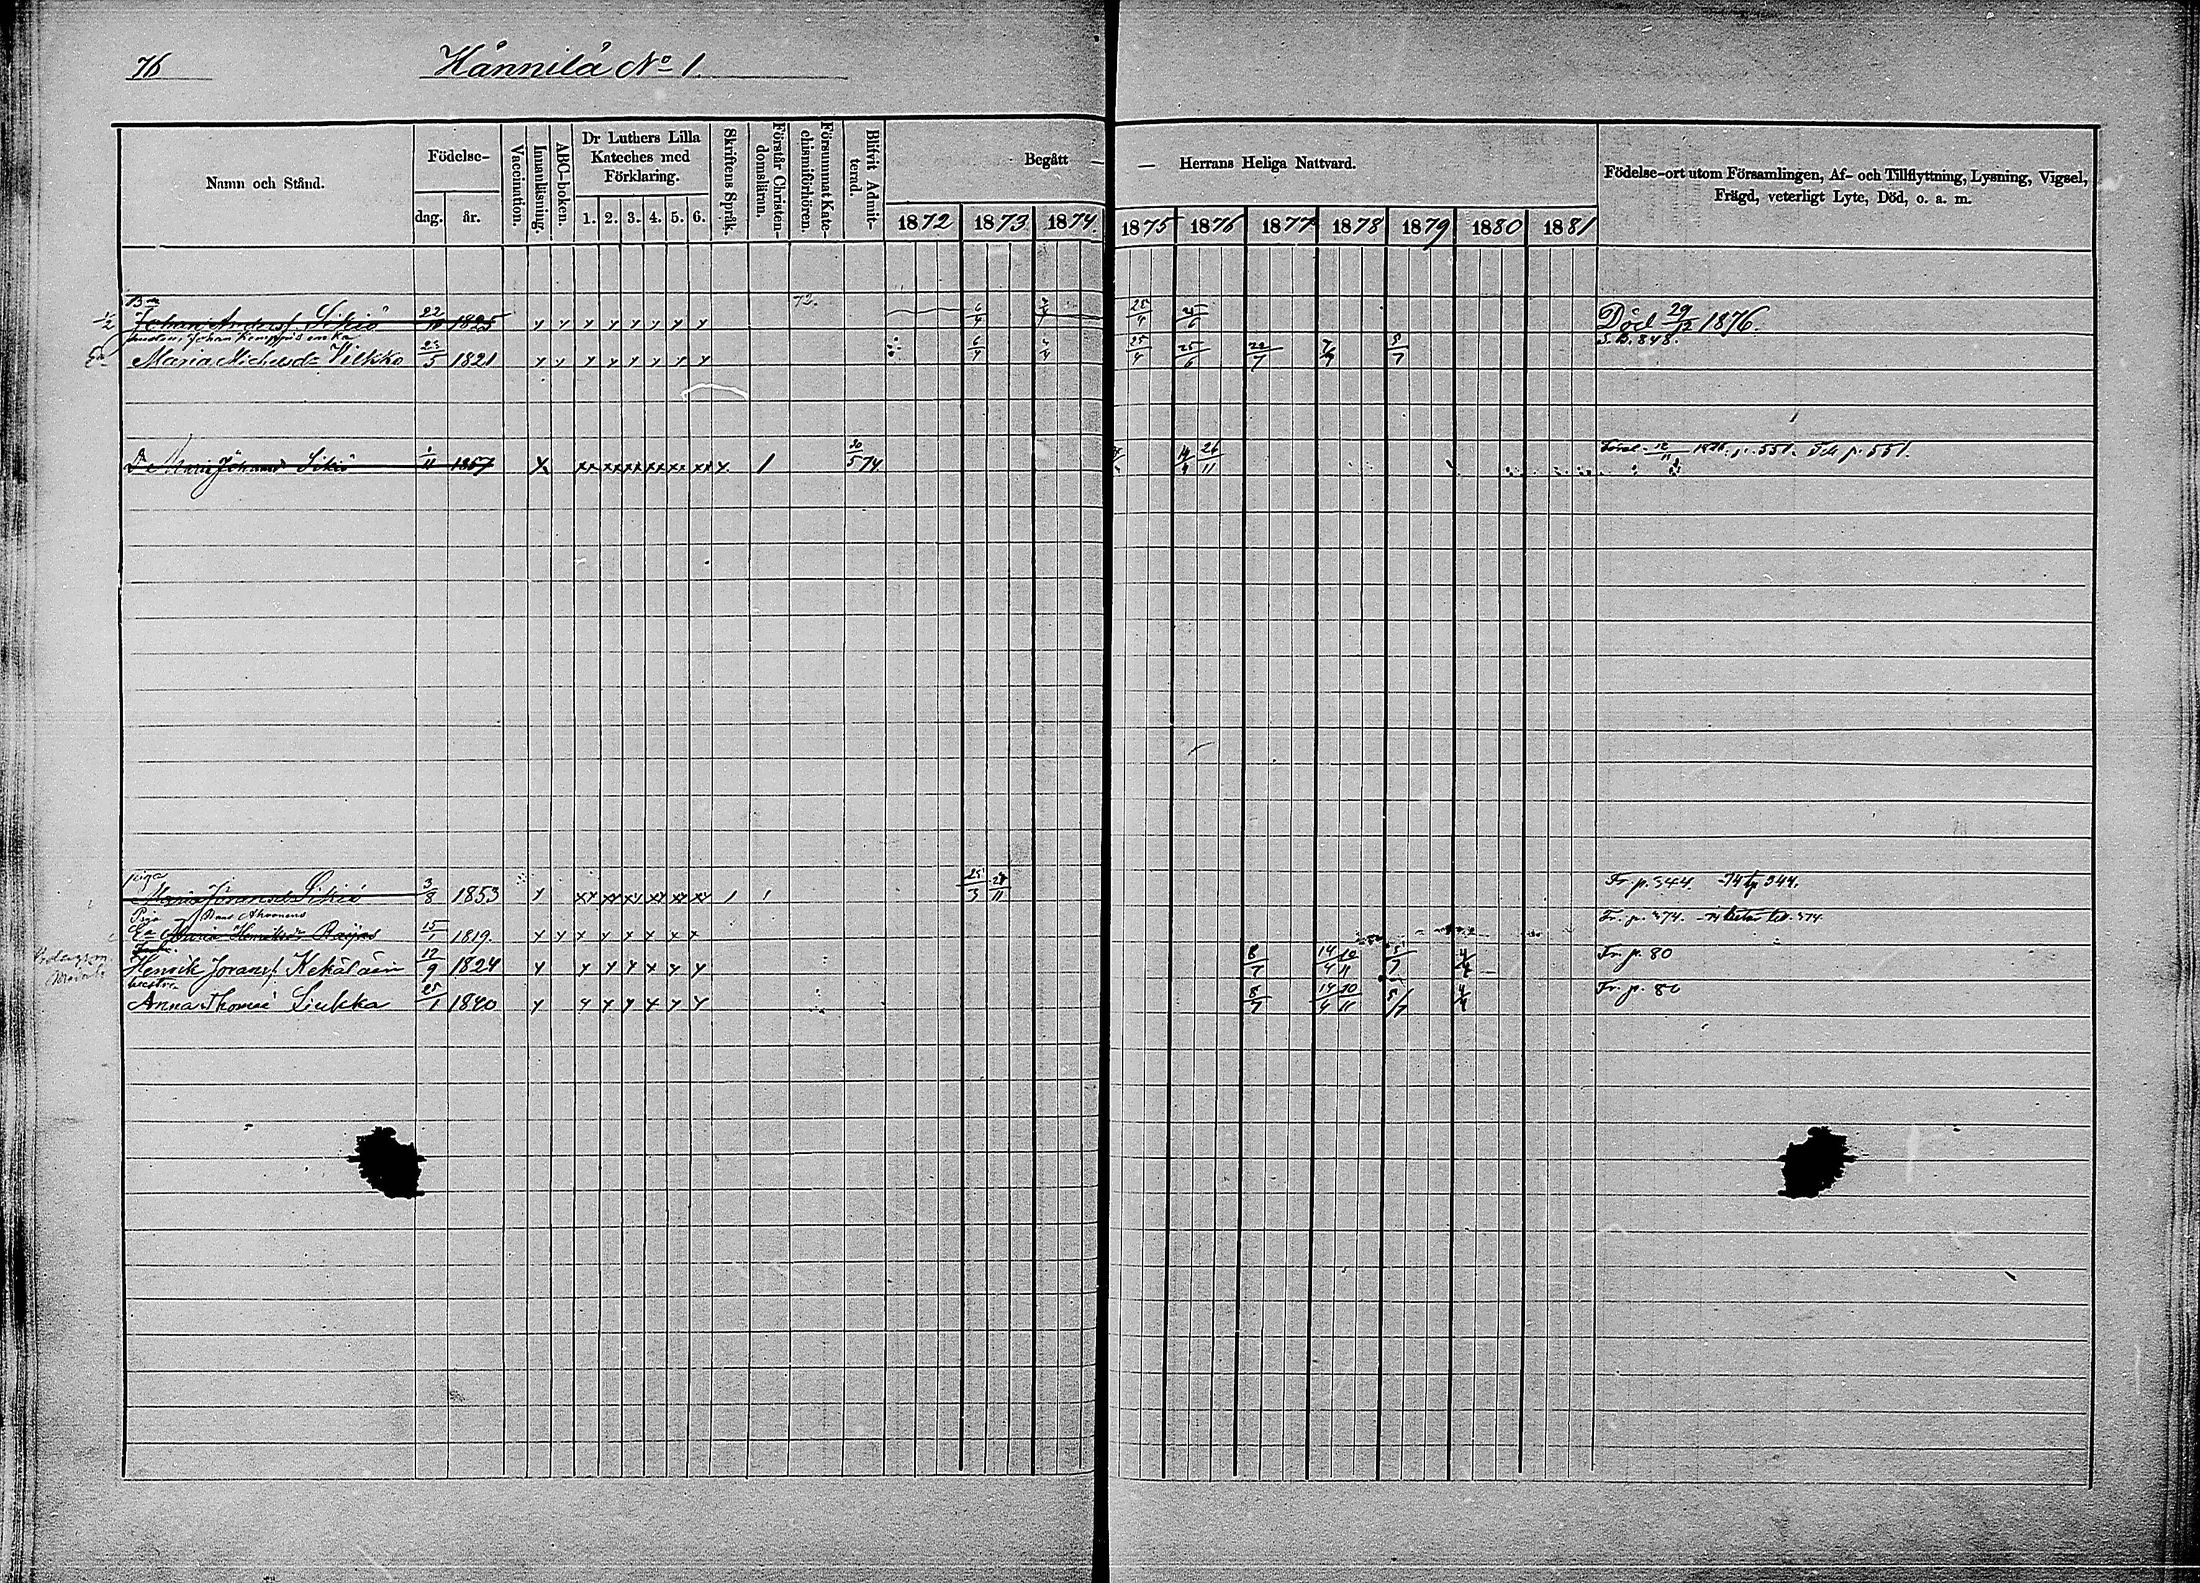 76
Hännilä No 1.
Namn och Stånd.
Födelse-
dag. år.
Vaccination.
Innanläsning.
ABC-boken.
Dr Luthers Lilla Kateches med Förklaring.
1. 2. 3. 4. 5. 6.
Skriftens Språk.
Förstår Christendomsläran.
Försummat Katechismiförhören.
Blifvit Admitterad.
Begått — — Herrans Heliga Nattvard.
1872 1873 1874. 1875 1876 1877 1878 1879 1880 1881
Födelse-ort utom Församlingen, Af- och Tillflyttning, Lysning, Vigsel,
Frägd, veterligt Lyte, Död, o. a. m.
1/2 Johan Andersf. Sikiö 22/10 1825 y y y y y y y y 72. 6/4 25/4 25/6 Död 29/12 1876.
Johan Kemppis enka S.B. 848.
Maria Michelsdr Vilkko 23/5 1821 y y y y y y y y 6/4 25/4 25/6 22/7 7/4 5/7
Dr Maria Johansdr Sikiö 1/11 1857 x xx xx xx xx xx xx x 1 30/5 74 26/11 p. 551. p. 551.
piga
Maria Johansdr Sikiö 3/8 1853 y xy xy xy xy xy xy 1 1 25/3 28/11 Fr. p. 344. 74 344.
Piga
Ea Maria Henriksdr Raijas 15/1 1819. y y y y y y y x Fr. p. 374.
Henrik Joransf. Kekäläin 12/9 1824 y y y y x y y 8/7 14/4 10/11 5/7 4/4 Fr. p. 80
hustru
Anna Thomasd Liukka 25/1 1840 y y y y y y y 8/7 14/4 10/11 5/7 4/4 Fr. p. 80